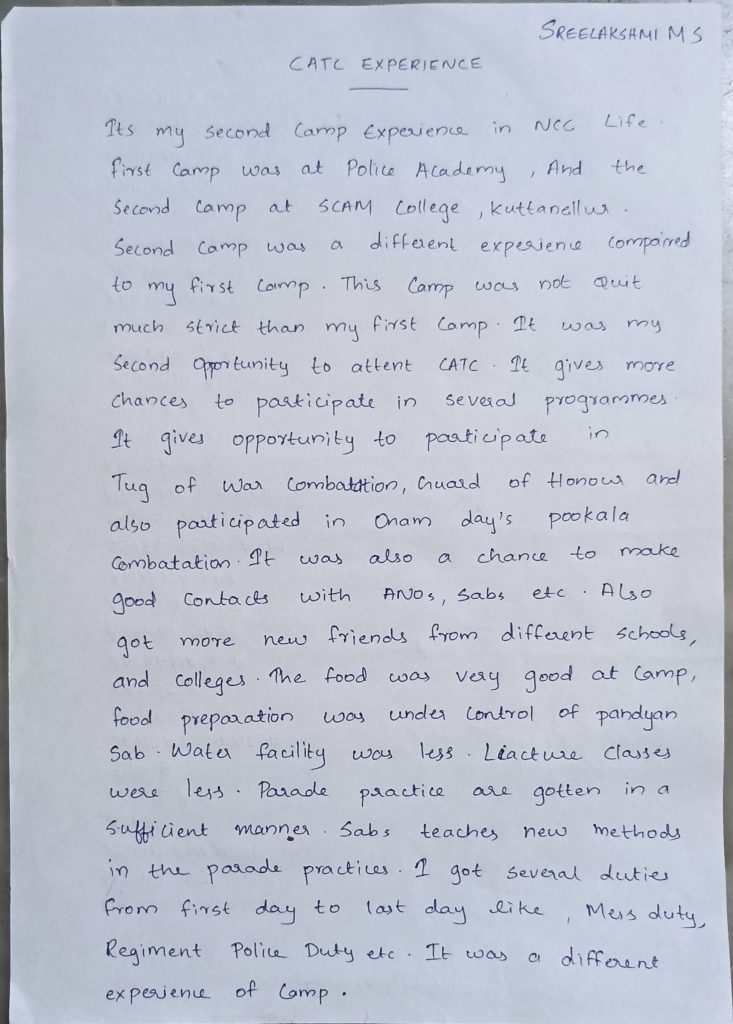 SREELAKSHMI M S
CATC EXPERIENCE
Its my second Camp Experience in NCC Life.
first Camp was at Police Academy , And the
Second Camp at SCAM College , Kuttanellur .
Second Camp was a different experience compairred
to my first Camp . This Camp was not Quit
much strict than my first Camp . It was my
Second Opportunity to attent CATC . It gives more
Chances to participate in several programmes .
It gives opportunity to participate in
Tug of War Combatation, Guard of Honour and
also participated in Onam day's pookala
Combatation . It was also a chance to make
good Contacts with ANOs, Sabs etc . Also
got more new friends from different schools,
and colleges . The food was very good at Camp,
food preparation was under control of pandyan
Sab . Water facility was less . Liacture Classes
were less . Parade practice are gotten in a
Sufficient manner . Sabs teaches new methods
in the parade practices . I got several duties
from first day to last day like , Mess duty,
Regiment Police Duty etc . It was a different
experience of Camp .